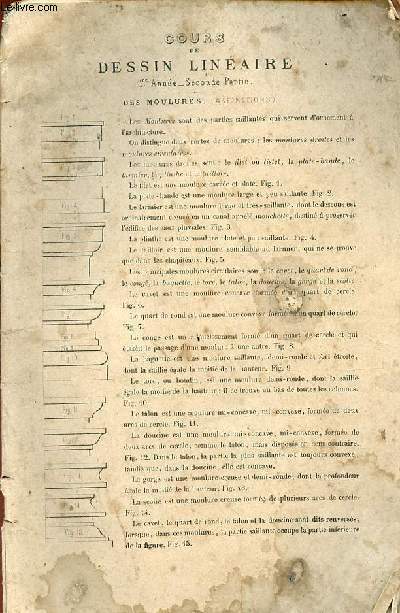 COURS
DE
DESSIN LINÉAIRE
1re Année _ Seconde Partie.
DES MOULURES.
Les Moulures sont des parties saillantes qui servent d'ornement à
l'architecture.
On distingue deux sortes de moulures : les moulures droites et les
moulures circulaires.
Les moulures droites sont : le filet ou listel, la plate-bande, le
larmier, la plinthe et
Le filet est une moulure carrée et étroite. Fig. 1.
La plate-bande est une moulure large et peu saillante. Fig. 2.
Le larmier est une moulure large et très-saillante, dont le dessous est
ordinairement creusé en un canal appelé mouchette, destiné à préserver
l'édifice des eaux pluviales. Fig. 3.
La plinthe est une moulure plate et peu saillante. Fig. 4.
est une moulure semblable au larmier, qui ne se trouve
que dans les chapiteaux. Fig. 5.
Les principales moulures circulaires sont : le cavet, le quart de rond,
le congé, la baguette, le tore, le talon, la doucine, la gorge et la scotie.
Le cavet est une moulure concave formée d'un quart de cercle.
Fig. 6.
Le quart de rond est une moulure convexe formée d'un quart de cercle.
Fig. 7.
Le congé est un formé d'un quart de cercle et qui
le passage d'une moulure à une autre. Fig. 8.
La baguette est une moulure saillante, demi-ronde et très étroite,
dont la saillie égale la moitié de la hauteur. Fig. 9.
Le tore, ou boudin, est une moulure demi-ronde, dont la saillie
égale la moitié de la hauteur ; il se trouve au bas de toutes les colonnes.
Fig. 10.
Le talon est une moulure mi-concave, mi-convexe, formée de deux
arcs de cercle. Fig. 11.
La doucine est une moulure mi-concave, mi-convexe, formée de
deux arcs de cercle, comme le talon, mais disposés en sens contraire.
Fig. 12. Dans le talon, la partie la plus saillante est toujours convexe,
tandis que, dans la doucine, elle est concave.
La gorge est une moulure creuse et demi-ronde, dont la profondeur
égale la moitié de la hauteur. Fig. 13.
La scotie est une moulure creuse formée de plusieurs arcs de cercle.
Fig. 14.
Le cavet, le quart de rond, le talon et la doucine sont dits renversés,
lorsque, dans ces moulures, la partie saillante occupe la partie inférieure
de la figure. Fig. 15.